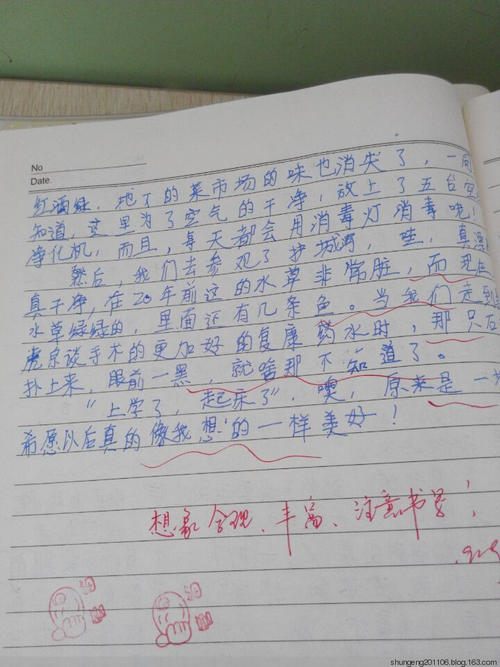 No
Date.
红酒绿。地下的菜市场的味也消失了，一问
知道，这里为了空气的干净，放上了五台空
净化机，而且，每天都会用消毒灯消毒呢！
然后，我们去参观了护城河，哇，真
真干净，在20年前这的水草非常脏，而现在
水草绿绿的，里面还有几条鱼。当我们走到
手术的更加好的复康药水时，那只
扑上来，眼前一黑，就啥都不知道了。
“上学了，起床了”，噢，原来是一
希愿以后真的像我想的一样美好！
想象合理、丰富、注意书写！
shungeng201106.blog.163.com